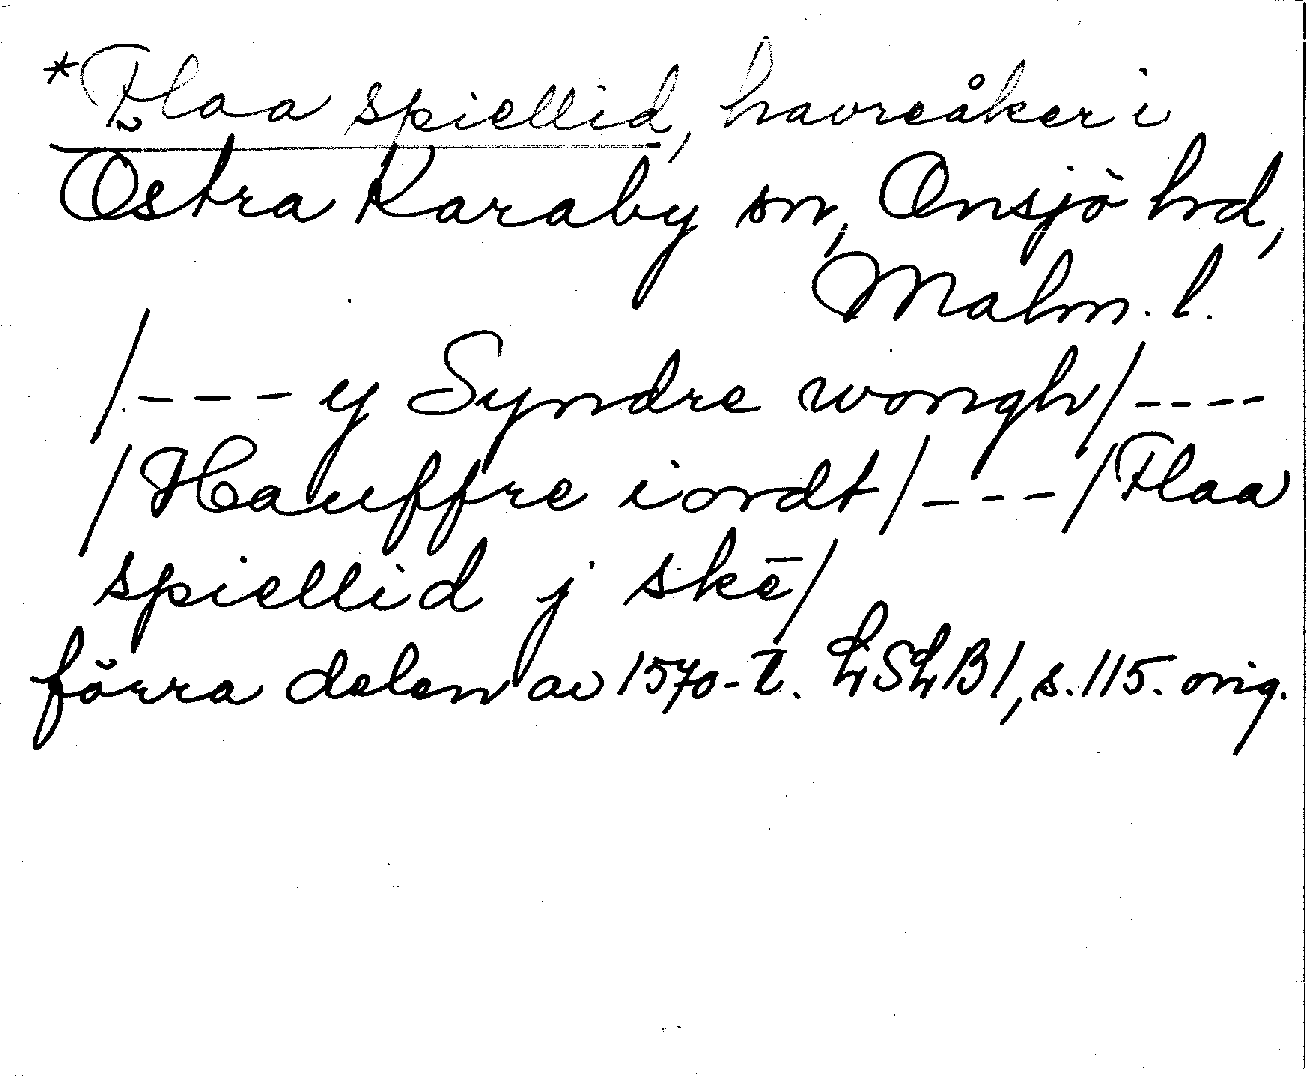 *Flaa spiellid, havreåker i
Östra Karaby sn, Onsjö hd,
Malm. l.
/--- y Syndre wongh/----
/Hauffre iordt/---/Flaa
spiellid j skē/
förra delen av 1570-t. LSLB1, s.115. orig.